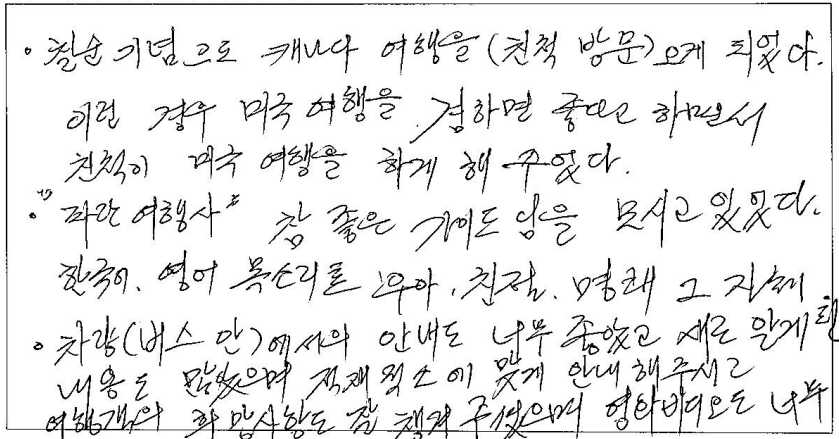 • 칠순 기념으로 캐나다 여행을 (친척 방문) 오게 되었다.
이런 경우 미국 여행을 겸하면 좋다고 하면서
친척이 미국 여행을 하게 해 주었다.
• "파란여행사" 참 좋은 가이드 님을 모시고 있었다.
한국어. 영어 목소리로 우아, 친절. 명쾌 그 자체
• 차량(버스 안)에서의 안내도 너무 좋았고 새로 알게 된
내용도 많았으며 적재적소에 맞게 안내 해주시고
여행객의 희망사항도 잘 챙겨 주셨으며 영화비디오도 너무